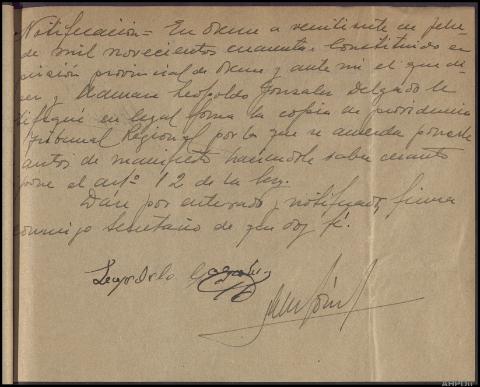 Notificación = En Orense a veintisiete de febre
de mil novecientos cuarenta. Constituido en
prisión provincial de Orense y ante mi el que di
ser y llamarse Leopoldo Gonzalez Delgado le
tifiqué en legal forma la copia de providencia
Tribunal Regional por la que se acuerda ponerle
autos de manifiesto haciendole saber cuanto
pone el artº 12 de la ley.
Dáse por enterado y notificado, firma
conmigo Secretario de que doy fé.
Leopoldo Gonzalez